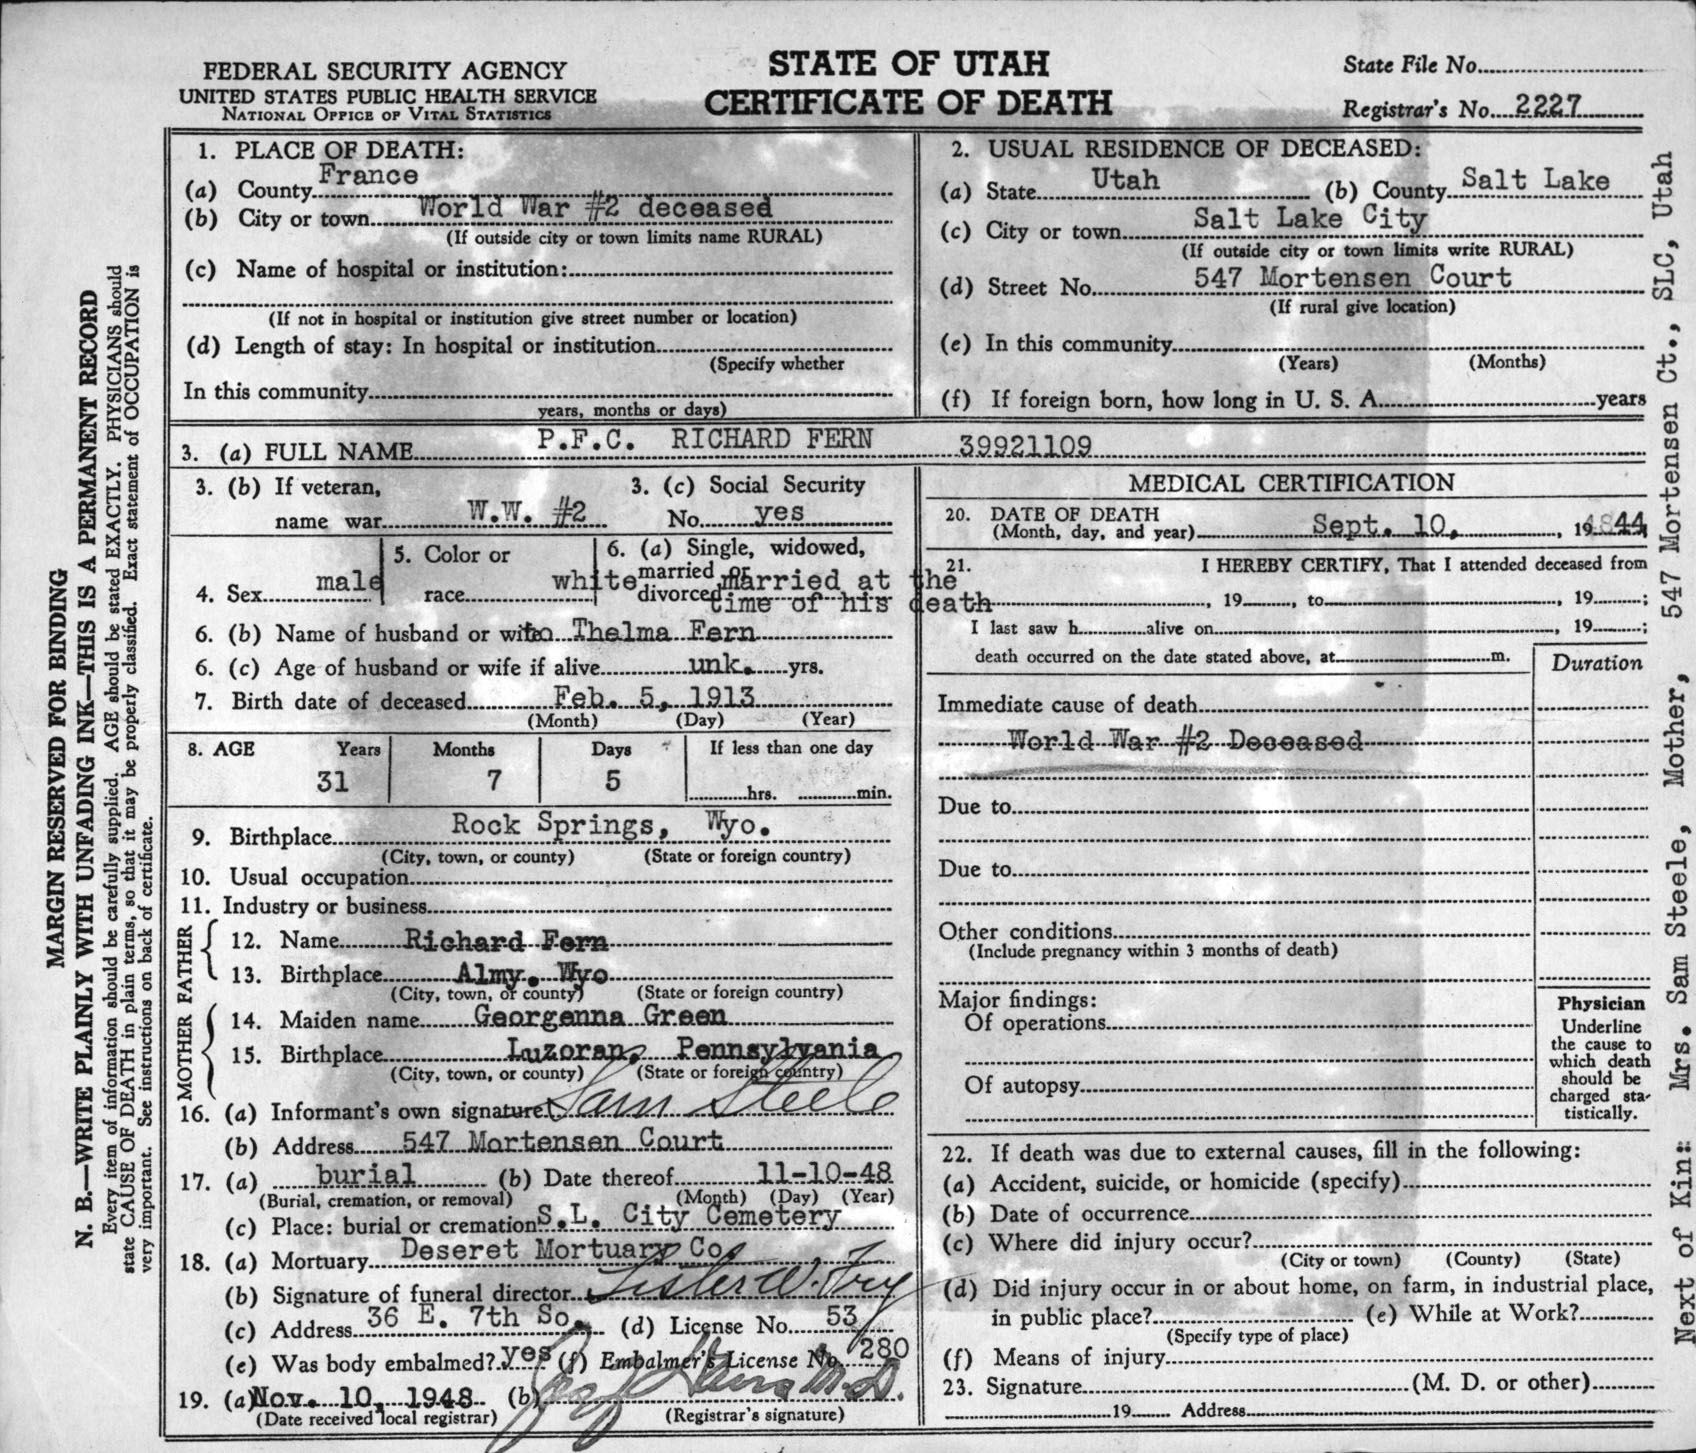 FEDERAL SECURITY AGENCY
UNITED STATES PUBLIC HEALTH SERVICE
NATIONAL OFFICE OF VITAL STATISTICS
STATE OF UTAH
CERTIFICATE OF DEATH
State File No.
Registrar's No. 2227
1. PLACE OF DEATH:
(a) County France
(b) City or town World War #2 deceased
(If outside city or town limits name RURAL)
(c) Name of hospital or institution:
(If not in hospital or institution give street number or location)
(d) Length of stay: In hospital or institution
(Specify whether
In this community
years, months or days)
2. USUAL RESIDENCE OF DECEASED:
(a) State Utah (b) County Salt Lake
(c) City or town Salt Lake City
(If outside city or town limits write RURAL)
(d) Street No. 547 Mortensen Court
(If rural give location)
(e) In this community
(Years) (Months)
(f) If foreign born, how long in U. S. A. years
3. (a) FULL NAME P.F.C. RICHARD FERN 39921109
3. (b) If veteran,
name war W.W. #2
3. (c) Social Security
No. yes
4. Sex male
5. Color or
race white
6. (a) Single, widowed,
married or
divorced married at the
time of his death
6. (b) Name of husband or wife to Thelma Fern
6. (c) Age of husband or wife if alive unk. yrs.
7. Birth date of deceased Feb. 5, 1913
(Month) (Day) (Year)
8. AGE Years Months Days If less than one day
31 7 5 hrs. min.
9. Birthplace Rock Springs, Wyo.
(City, town, or county) (State or foreign country)
10. Usual occupation
11. Industry or business
FATHER
12. Name Richard Fern
13. Birthplace Almy. Wyo
(City, town, or county) (State or foreign country)
MOTHER
14. Maiden name Georgenna Green
15. Birthplace Luzoran, Pennsylvania
(City, town, or county) (State or foreign country)
16. (a) Informant's own signature Sam Steele
(b) Address 547 Mortensen Court
17. (a) burial (b) Date thereof 11-10-48
(Burial, cremation, or removal) (Month) (Day) (Year)
(c) Place: burial or cremation S.L. City Cemetery
18. (a) Mortuary Deseret Mortuary Co.
(b) Signature of funeral director
(c) Address 36 E. 7th So. (d) License No. 53
(e) Was body embalmed? yes (f) Embalmer's License No. 280
19. (a) Nov. 10, 1948 (b) M.D.
(Date received local registrar) (Registrar's signature)
MEDICAL CERTIFICATION
20. DATE OF DEATH
(Month, day, and year) Sept. 10, 1944
21. I HEREBY CERTIFY, That I attended deceased from
, 19 , to , 19 ;
I last saw h alive on , 19 ;
death occurred on the date stated above, at m.
Duration
Immediate cause of death
World War #2 Deceased
Due to
Due to
Other conditions
(Include pregnancy within 3 months of death)
Major findings:
Of operations
Of autopsy
Physician
Underline
the cause to
which death
should be
charged sta-
tistically.
22. If death was due to external causes, fill in the following:
(a) Accident, suicide, or homicide (specify)
(b) Date of occurrence
(c) Where did injury occur?
(City or town) (County) (State)
(d) Did injury occur in or about home, on farm, in industrial place,
in public place? (e) While at Work?
(Specify type of place)
(f) Means of injury
23. Signature (M. D. or other)
19 Address
MARGIN RESERVED FOR BINDING
N. B.—WRITE PLAINLY WITH UNFADING INK—THIS IS A PERMANENT RECORD
Every item of information should be carefully supplied. AGE should be stated EXACTLY. PHYSICIANS should
state CAUSE OF DEATH in plain terms, so that it may be properly classified. Exact statement of OCCUPATION is
very important. See instructions on back of certificate.
Next of Kin: Mrs. Sam Steele, Mother, 547 Mortensen Ct., SLC, Utah